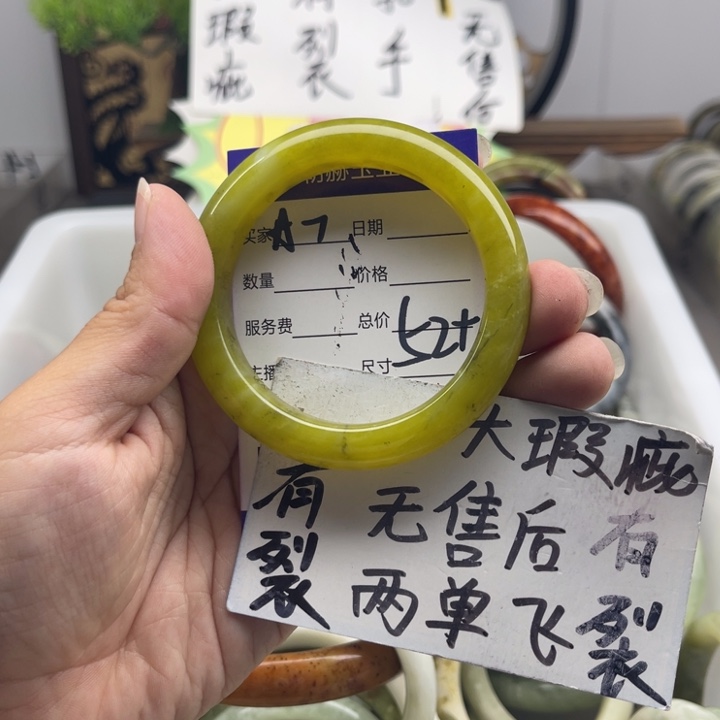 瑕疵
有裂
手
无售后
买家 A7 日期
数量 价格
服务费 总价
尺寸 52+
大瑕疵
有裂
无售后
两单飞
有裂